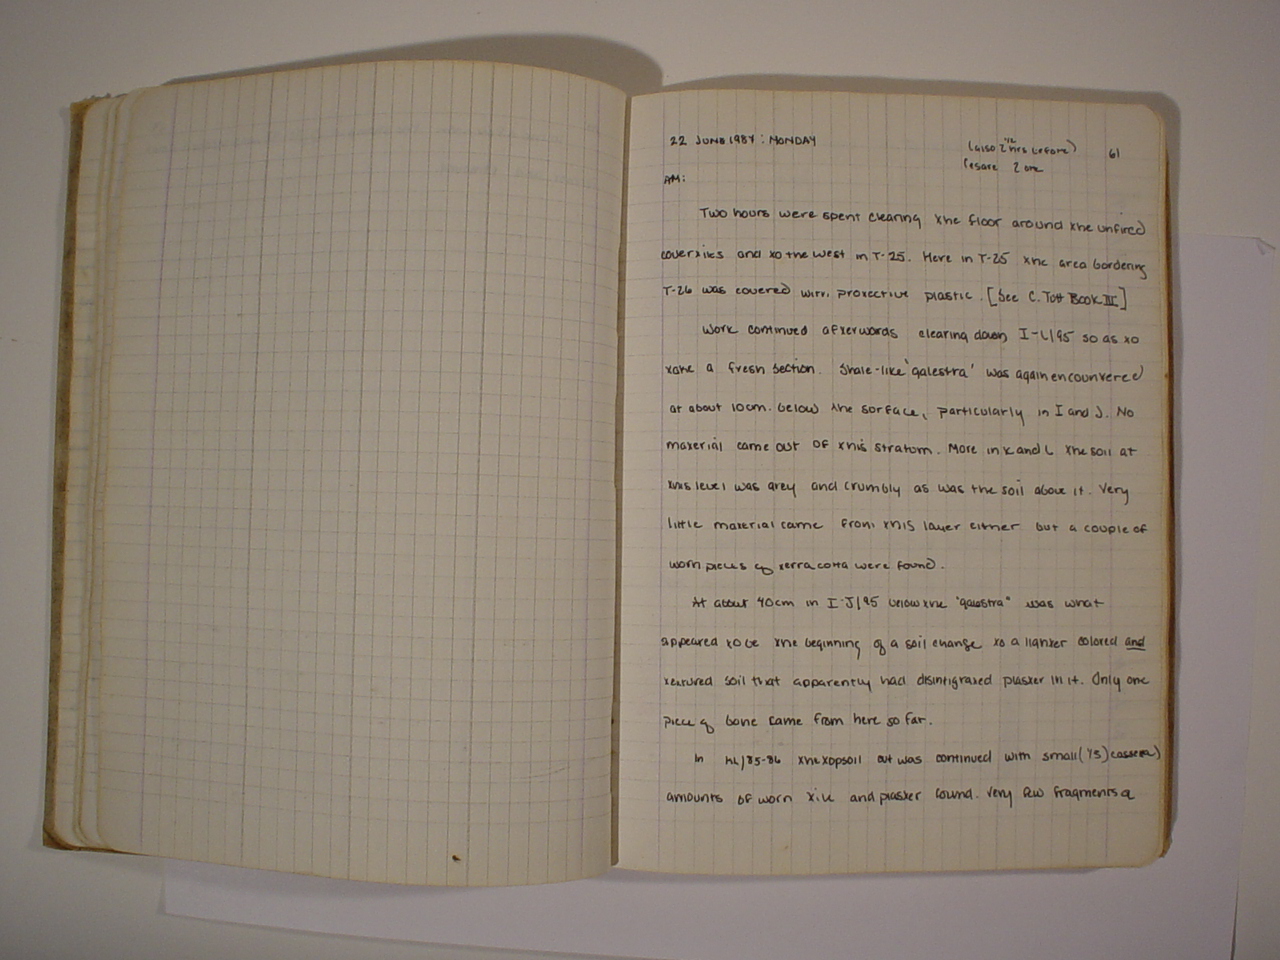 22 JUNE 1987 : MONDAY
(also 2 hrs before)
61
AM:
Two hours were spent clearing the floor around the unfired
covertiles and to the west in T-25. Here in T-25 the area bordering
T-26 was covered with protective plastic. [See C. Tott Book III]
Work continued afterwords clearing down I-L/95 so as to
take a fresh section. Shale-like 'galestra' was again encountered
at about 10cm. below the surface, particularly in I and J. No
material came out of this stratum. More in K and L the soil at
this level was grey and crumbly as was the soil above it. Very
little material came from this layer either but a couple of
worn pieces of terracotta were found.
At about 40cm in I-J/95 below the "galestra" was what
appeared to be the beginning of a soil change to a lighter colored and
textured soil that apparently had disintigrated plaster in it. Only one
piece of bone came from here so far.
In /85-86 the topsoil cut was continued with small (1/3) cassetta)
amounts of worn tile and plaster found. Very few fragments of